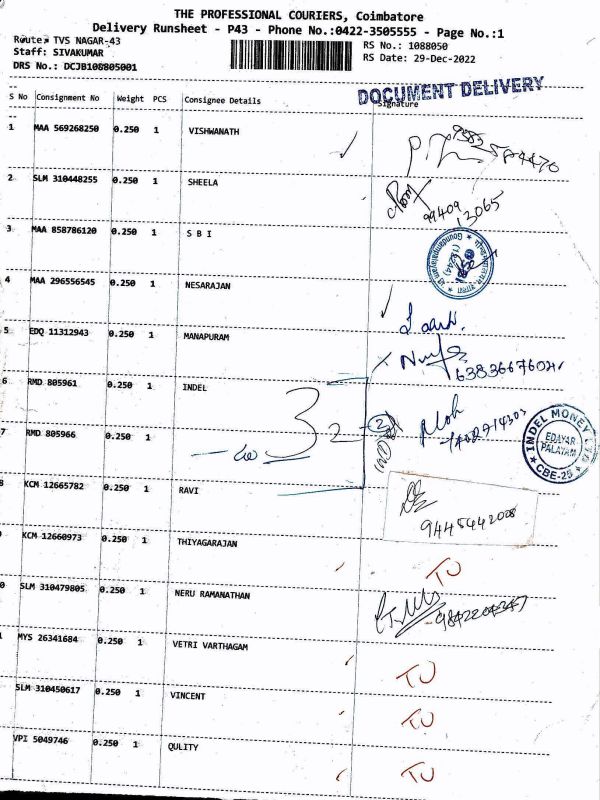 THE PROFESSIONAL COURIERS, Coimbatore
Delivery Runsheet - P43 - Phone No.:0422-3505555 - Page No.:1
Route: TVS NAGAR-43
RS No.: 1088050
Staff: SIVAKUMAR
RS Date: 29-Dec-2022
DRS No.: DCJB108805001
DOCUMENT DELIVERY
S No Consignment No Weight PCS Consignee Details Signature
1 MAA 569268250 0.250 1 VISHWANATH
2 SLM 310448255 0.250 1 SHEELA
99409
13065
3 MAA 858786120 0.250 1 S B I
4 MAA 296556545 0.250 1 NESARAJAN
5 EDQ 11312943 0.250 1 MANAPURAM
6 RMD 805961 0.250 1 INDEL
3 2 2
INDEL MONEY LTD
EDAYAR
PALAYAM
CBE-25
7 RMD 805966 0.250 1
8 KCM 12665782 0.250 1 RAVI
9445442008
KCM 12660973 0.250 1 THIYAGARAJAN
TU
0 SLM 310479805 0.250 1 NERU RAMANATHAN
1 MYS 26341684 0.250 1 VETRI VARTHAGAM
TU
SLM 310450617 0.250 1 VINCENT
TU
VPI 5049746 0.250 1 QULITY
TU